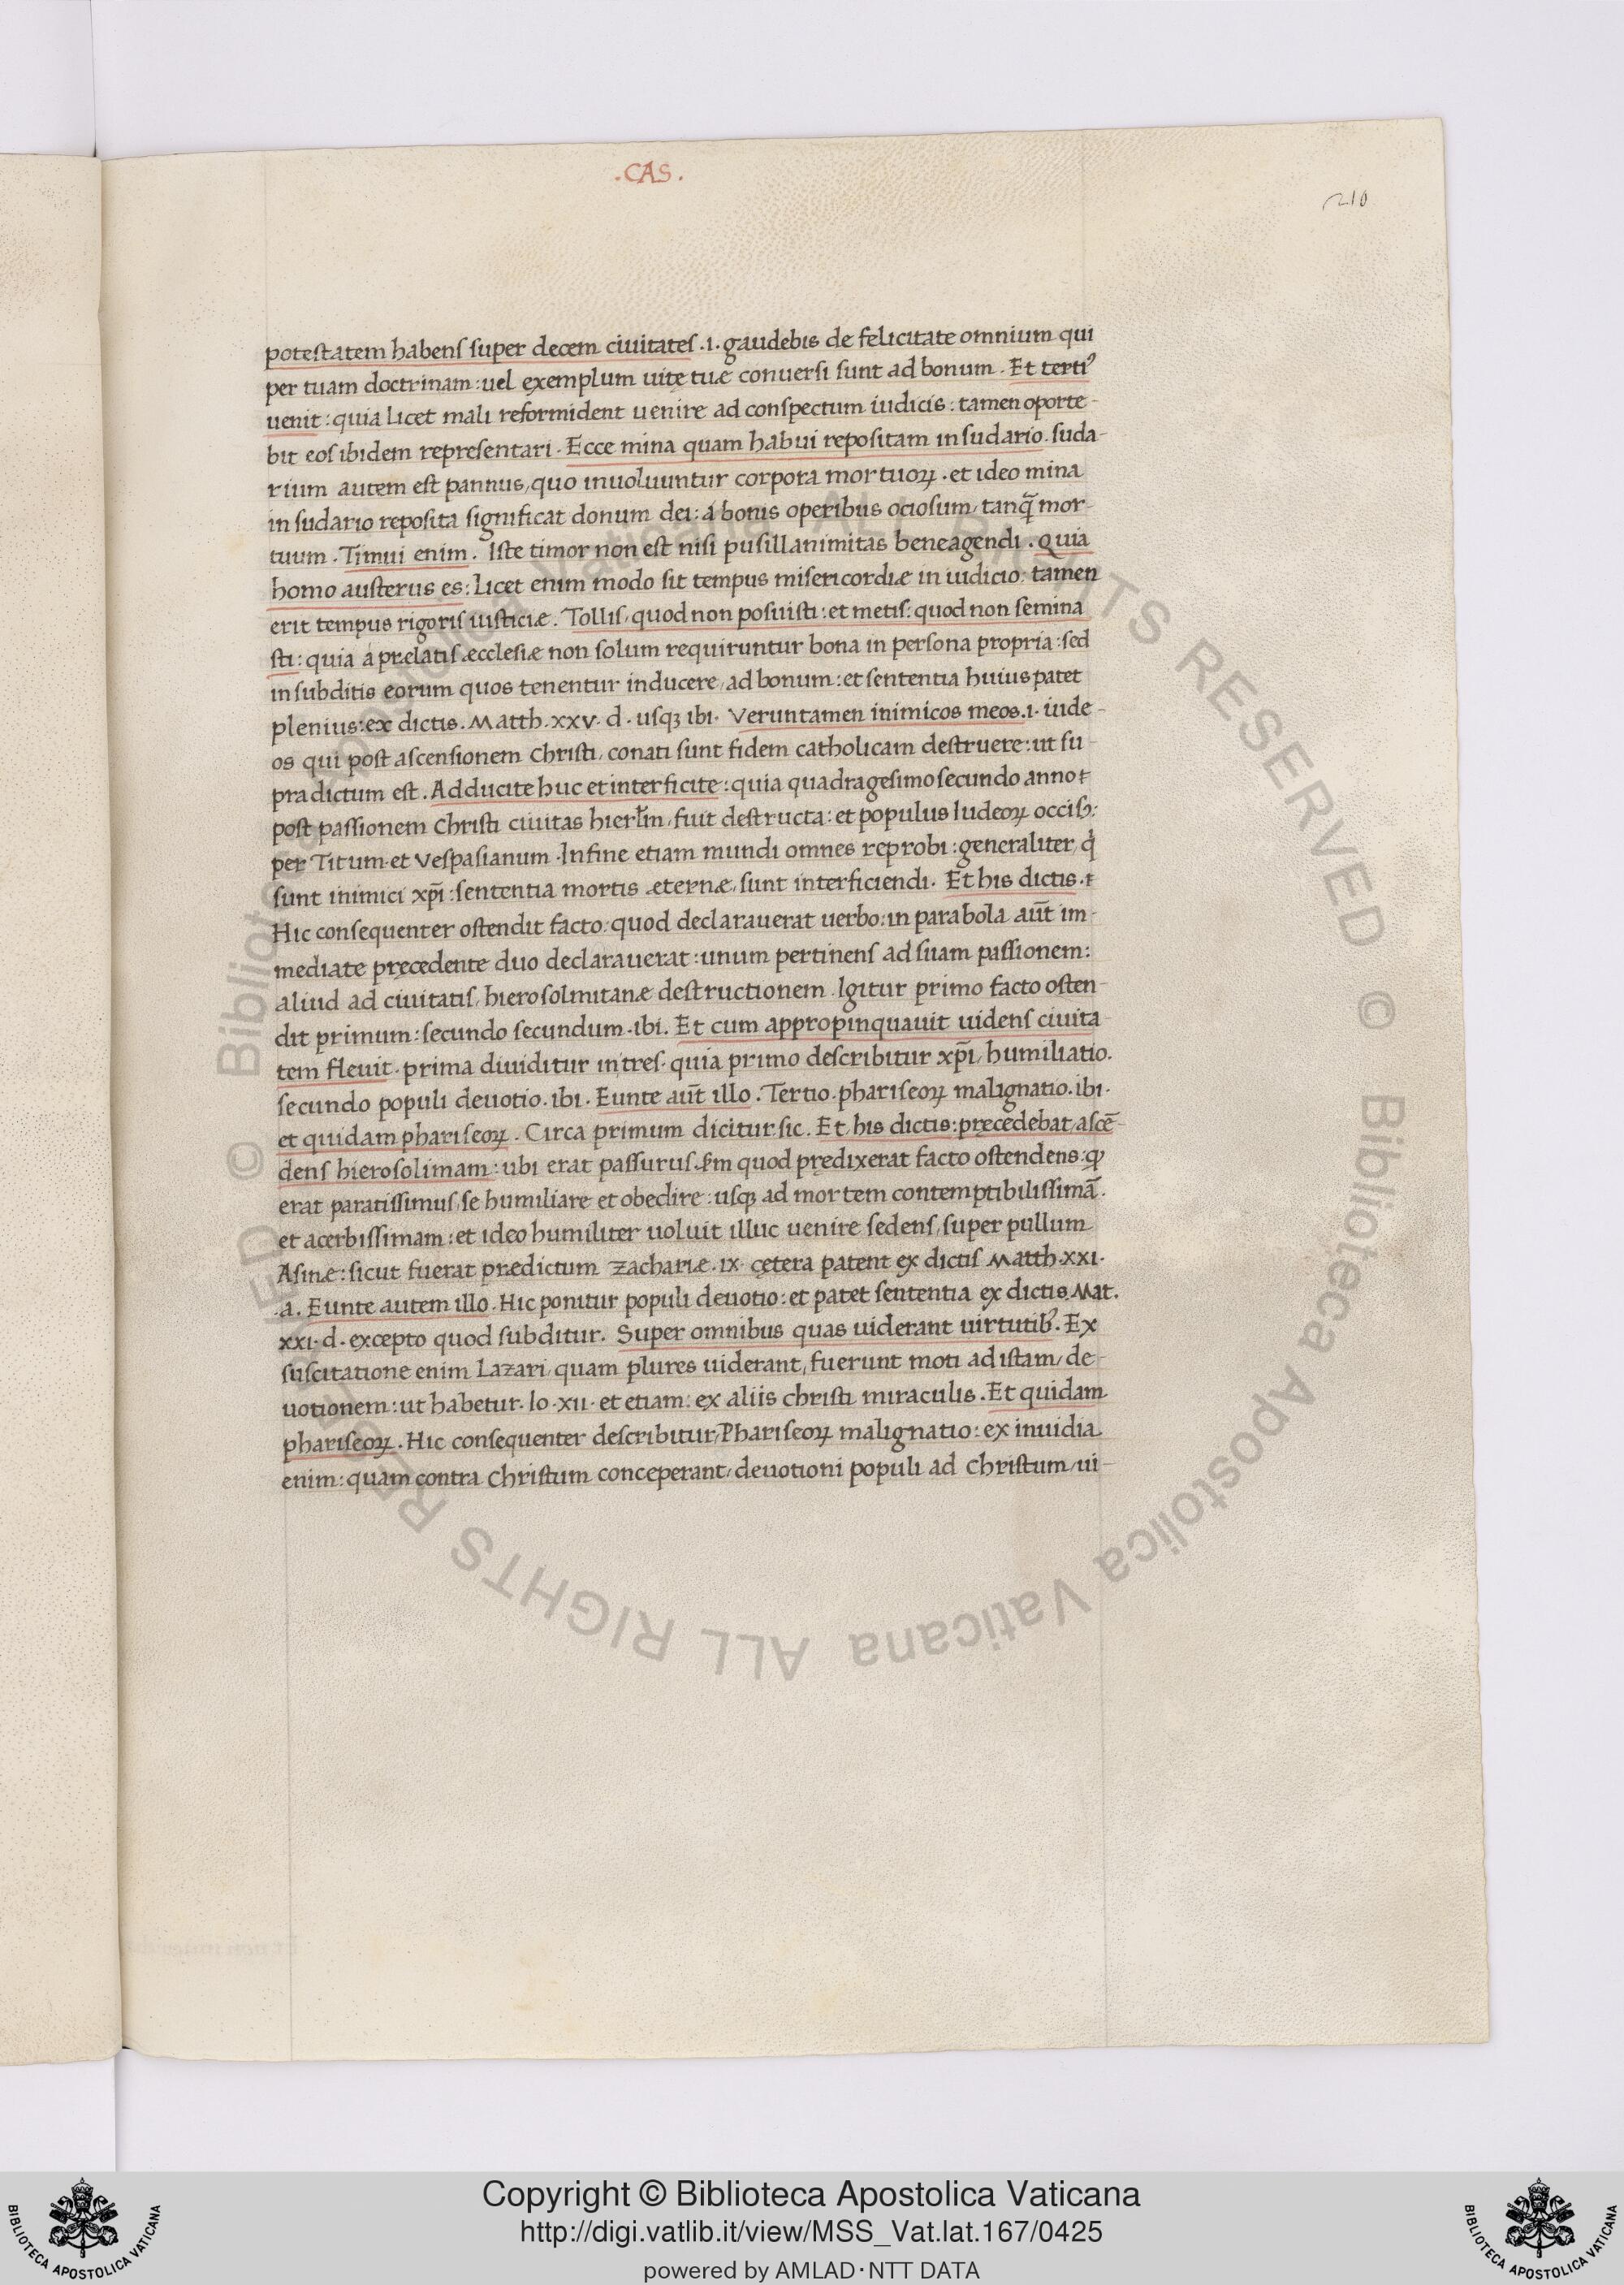 .CAS.
210
potestatem habens super decem ciuitates .i. gaudebis de felicitate omnium qui
per tuam doctrinam : uel exemplum uitę tuæ conuersi sunt ad bonum . Et terti⁹
uenit : quia licet mali reformident uenire ad conspectum iudicis : tamen oporte-
bit eos ibidem representari . Ecce mina quam habui repositam in sudario . suda-
rium autem est pannus, quo inuoluuntur corpora mortuoꝝ . et ideo mina
in sudario reposita significat donum dei : á bonis operibus ociosum, tanq̃ mor-
tuum . Timui enim . Iste timor non est nisi pusillanimitas bene agendi . Quia
homo austerus es : Licet enim modo sit tempus misericordiæ in iudicio : tamen
erit tempus rigoris iusticiæ . Tollis, quod non posuisti : et metis : quod non semina
sti : quia á prælatis æcclesiæ non solum requiruntur bona in persona propria : sed
in subditis eorum quos tenentur inducere, ad bonum : et sententia huius patet
plenius : ex dictis . Matth . xxv . d . usqꝫ ibi . Veruntamen inimicos meos .i. iude-
os qui post ascensionem Christi, conati sunt fidem catholicam destruere : ut su-
pra dictum est . Adducite huc et interficite : quia quadragesimo secundo anno
post passionem Christi ciuitas hierl̃m, fuit destructa : et populus Iudeoꝝ occisꝰ :
per Titum et Vespasianum . In fine etiam mundi omnes reprobi : generaliter, q̇
sunt inimici xp̃i : sententia mortis æternæ, sunt interficiendi . Et his dictis .
Hic consequenter ostendit facto : quod declarauerat uerbo : in parabola aũt im-
mediate pręcedente duo declarauerat : unum pertinens ad suam passionem :
aliud ad ciuitatis, hierosolmitanæ destructionem . Igitur primo facto osten-
dit primum : secundo secundum . ibi . Et cum appropinquauit uidens ciuita-
tem fleuit . prima diuiditur in tres . quia primo describitur xp̃i, humiliatio .
secundo populi deuotio . ibi . Eunte aũt illo . Tertio . phariseoꝝ malignatio . ibi .
et quidam phariseoꝝ . Circa primum dicitur sic . Et his dictis : pręcedebat, ascẽ-
dens hierosolimam : ubi erat passurus . ẜm quod prędixerat facto ostendens : ꝙ
erat paratissimus, se humiliare et obedire : usqꝫ ad mortem contemptibilissimã .
et acerbissimam : et ideo humiliter uoluit illuc uenire sedens, super pullum
Asinæ : sicut fuerat prædictum Zachariæ . ix . cętera patent ex dictis Matth . xxi .
.a. Eunte autem illo . Hic ponitur populi deuotio : et patet sententia ex dictis . Mat .
xxi . d . excepto quod subditur . Super omnibus quas uiderant uirtutibꝰ . Ex
suscitatione enim Lazari, quam plures uiderant, fuerunt moti ad istam, de-
uotionem : ut habetur . Io . xii . et etiam : ex aliis christi miraculis . Et quidam
phariseoꝝ . Hic consequenter describitur, Phariseoꝝ malignatio : ex inuidia
enim : quam contra Christum conceperant, deuotioni populi ad Christum, ui-
© Biblioteca Apostolica Vaticana ALL RIGHTS RESERVED © Biblioteca Apostolica Vaticana ALL RIGHTS RESERVED
BIBLIOTECA APOSTOLICA VATICANA
Copyright © Biblioteca Apostolica Vaticana
http://digi.vatlib.it/view/MSS_Vat.lat.167/0425
powered by AMLAD·NTT DATA
BIBLIOTECA APOSTOLICA VATICANA